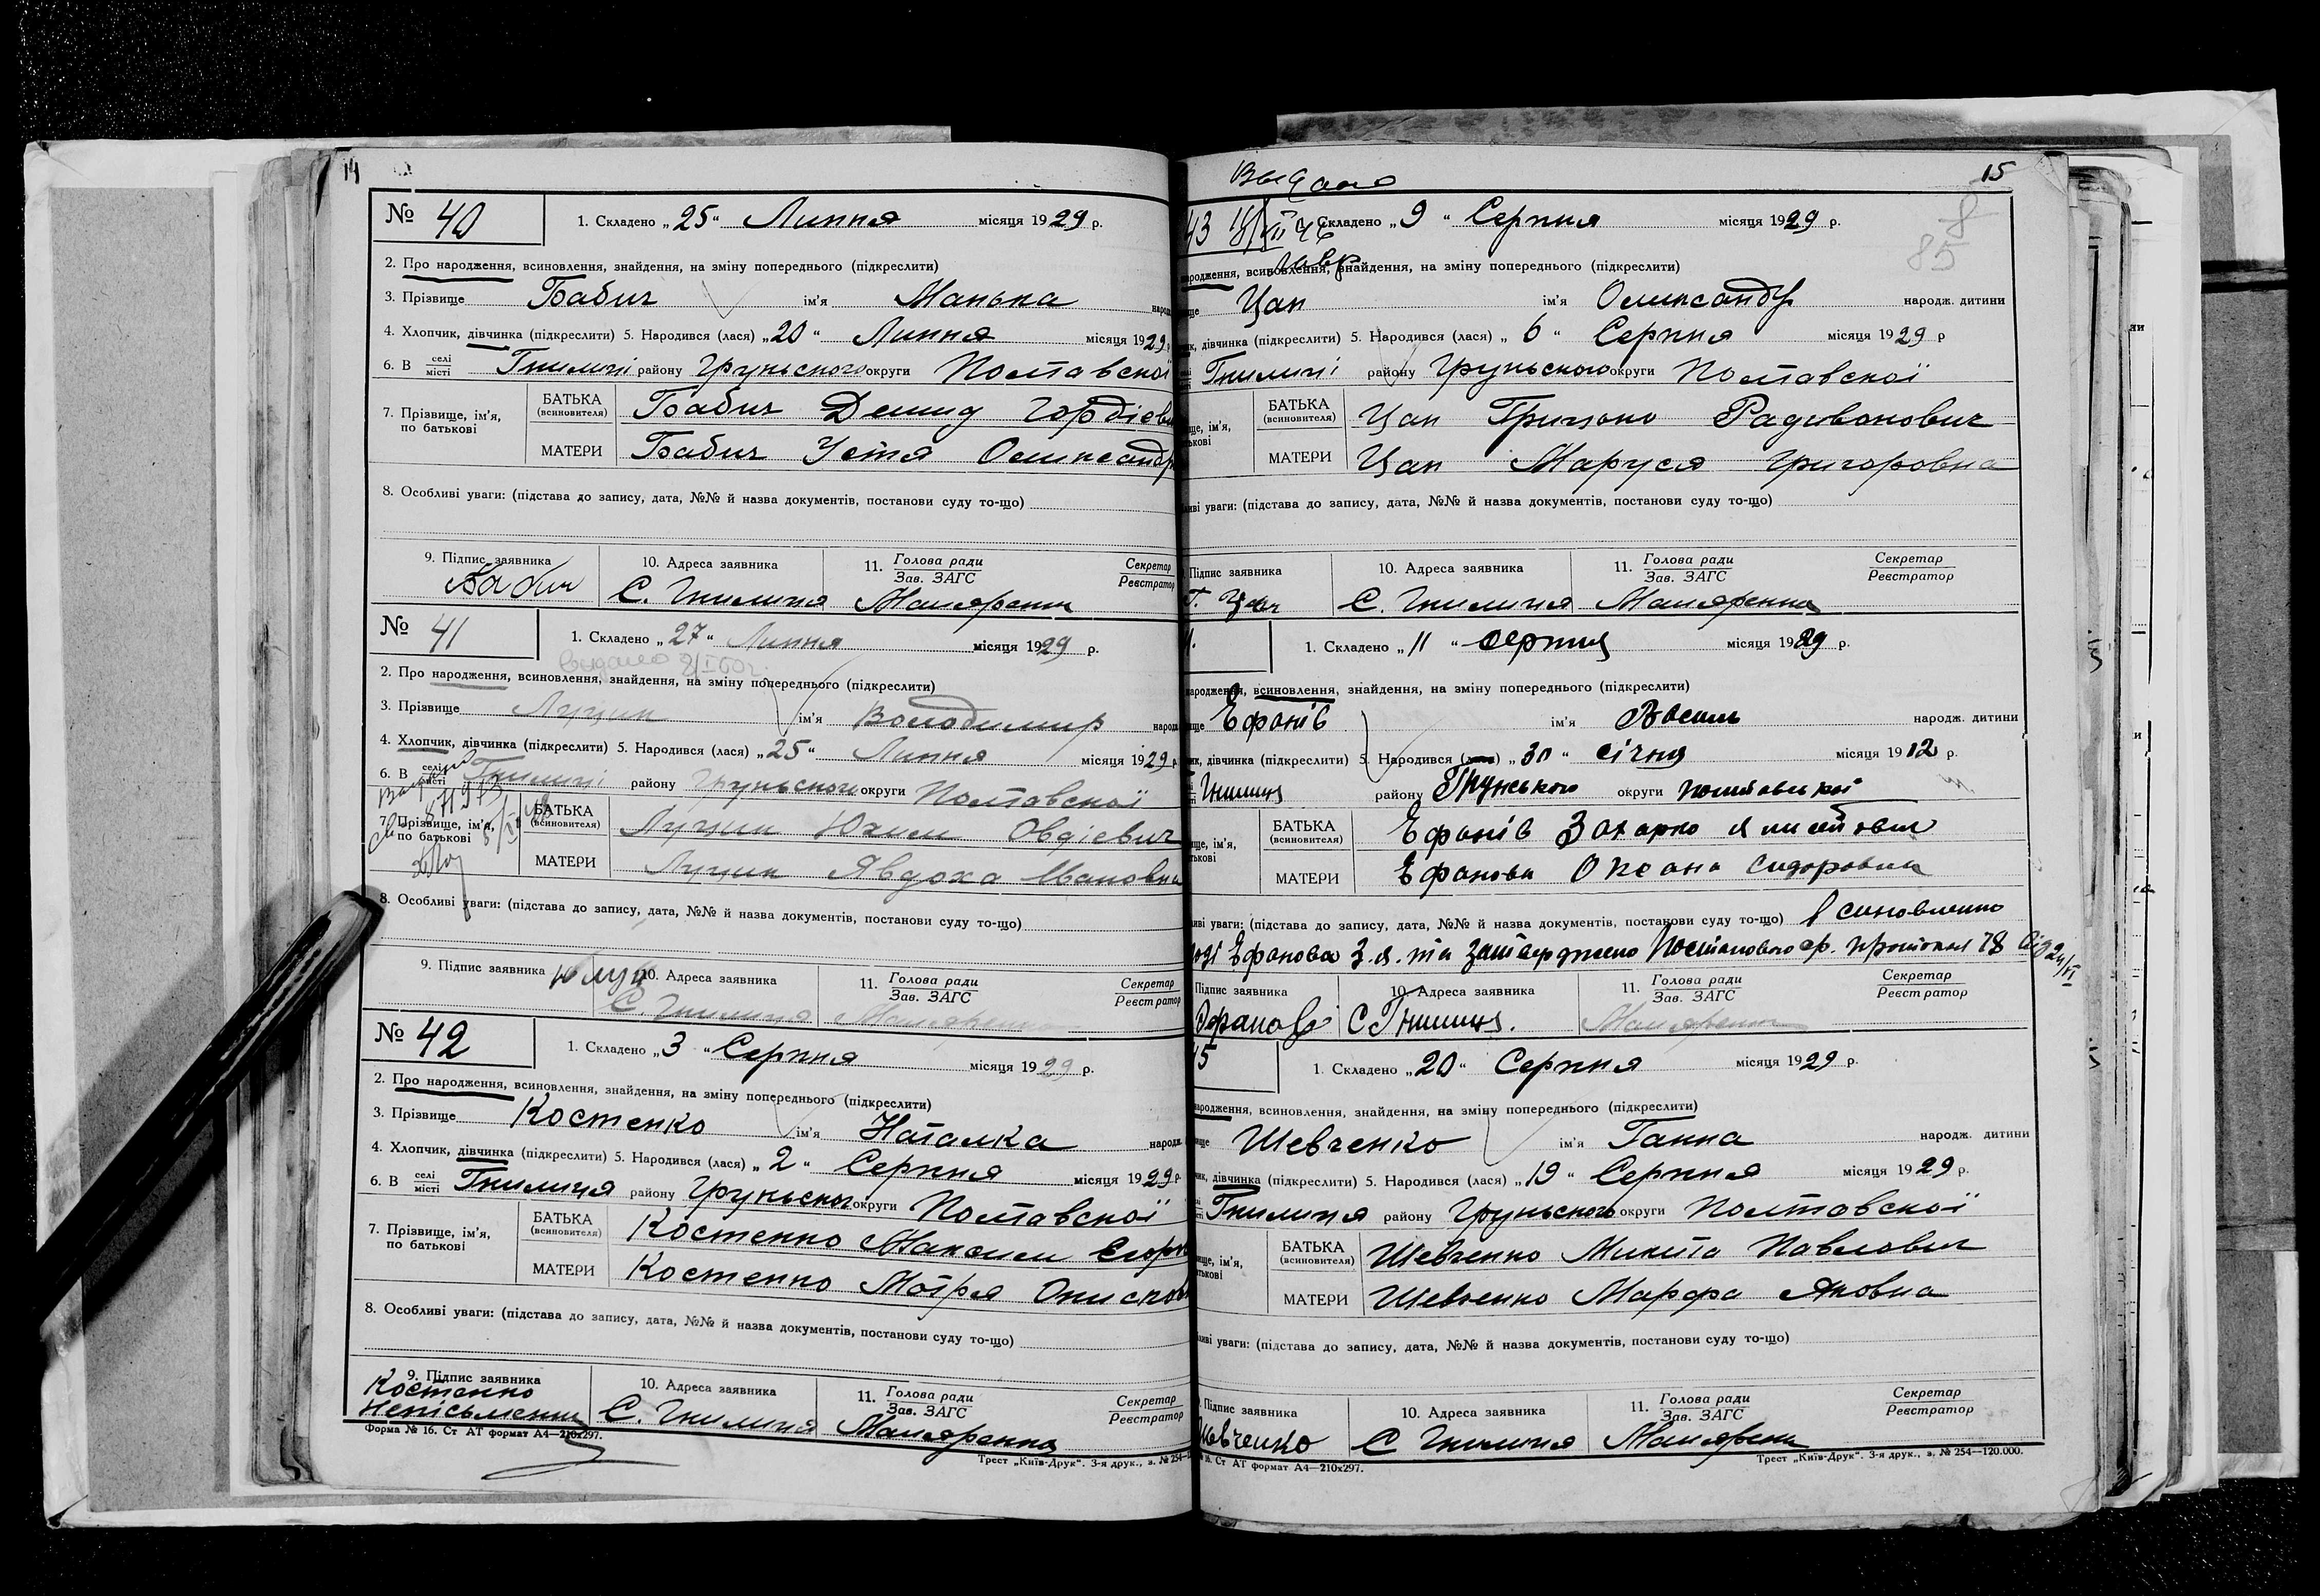 14
№ 40
1. Складено „25“ Липня місяця 1929 р.
2. Про народження, всиновлення, знайдення, на зміну попереднього (підкреслити)
3. Прізвище Бабич ім'я Манька народ
4. Хлопчик, дівчинка (підкреслити) 5. Народився (лася) „20“ Липня місяця 1929 р.
6. В селі місті Гнилиці району Груньского округи Полтавскої
7. Прізвище, ім'я, по батькові
БАТЬКА (всиновителя) Бабич Демид Гордієви
МАТЕРИ Бабич Устя Олександр
8. Особливі уваги: (підстава до запису, дата, №№ й назва документів, постанови суду то-що)
9. Підпис заявника 10. Адреса заявника 11. Голова ради Зав. ЗАГС Секретар Реєстратор
Бабич С. Гнилиця Маляренко
№ 41
1. Складено „27“ Липня місяця 1929 р.
2. Про народження, всиновлення, знайдення, на зміну попереднього (підкреслити)
3. Прізвище Луцик ім'я Володимир народ
4. Хлопчик, дівчинка (підкреслити) 5. Народився (лася) „25“ Липня місяця 1929 р.
6. В селі місті Гнилиці району Груньского округи Полтавскої
7. Прізвище, ім'я, по батькові
БАТЬКА (всиновителя) Луцик Юхим Овдієвич
МАТЕРИ Луцик Явдоха Івановна
8. Особливі уваги: (підстава до запису, дата, №№ й назва документів, постанови суду то-що)
9. Підпис заявника 10. Адреса заявника 11. Голова ради Зав. ЗАГС Секретар Реєстратор
С. Гнилиця Маляренко
№ 42
1. Складено „3“ Серпня місяця 1929 р.
2. Про народження, всиновлення, знайдення, на зміну попереднього (підкреслити)
3. Прізвище Костенко ім'я Наталка народж.
4. Хлопчик, дівчинка (підкреслити) 5. Народився (лася) „2“ Серпня місяця 1929 р.
6. В селі місті Гнилиця району Груньского округи Полтавскої
7. Прізвище, ім'я, по батькові
БАТЬКА (всиновителя) Костенко Максим Єгоро
МАТЕРИ Костенко Мотря Онисков
8. Особливі уваги: (підстава до запису, дата, №№ й назва документів, постанови суду то-що)
9. Підпис заявника 10. Адреса заявника 11. Голова ради Зав. ЗАГС Секретар Реєстратор
Костенко
неписьменни С. Гнилиця Маляренко
Форма № 16. Ст АТ формат А4—210х297.
Трест „Київ-Друк“. 3-я друк., з. № 254
15
85
43
Складено „9“ Серпня місяця 1929 р.
народження, всиновлення, знайдення, на зміну попереднього (підкреслити)
Цап ім'я Олександр народж. дитини
дівчинка (підкреслити) 5. Народився (лася) „6“ Серпня місяця 1929 р
Гнилиці району Груньского округи Полтавскої
БАТЬКА (всиновителя) Цап Грицько Радивонович
МАТЕРИ Цап Маруся Григоровна
уваги: (підстава до запису, дата, №№ й назва документів, постанови суду то-що)
Підпис заявника 10. Адреса заявника 11. Голова ради Зав. ЗАГС Секретар Реєстратор
Г. Цап С. Гнилиця Маляренко
1. Складено „11“ серпня місяця 1929 р.
народження, всиновлення, знайдення, на зміну попереднього (підкреслити)
Ефанів ім'я Василь народж. дитини
дівчинка (підкреслити) 5. Народився „30“ січня місяця 1912 р.
Гнилиця району Грунського округи
БАТЬКА (всиновителя) Ефанів Захарко
МАТЕРИ Ефанова Оксана Сидоровна
уваги: (підстава до запису, дата, №№ й назва документів, постанови суду то-що) всиновленно
Ефанова З. Я. та затверджено Постановою протокол 78 від 24/VI
Підпис заявника 10. Адреса заявника 11. Голова ради Зав. ЗАГС Секретар Реєстратор
С Гнилиця. Маляренко
1. Складено „20“ Серпня місяця 1929 р.
народження, всиновлення, знайдення, на зміну попереднього (підкреслити)
Шевченко ім'я Ганна народж. дитини
дівчинка (підкреслити) 5. Народився (лася) „19“ Серпня місяця 1929 р.
Гнилиця району Груньского округи Полтавскої
БАТЬКА (всиновителя) Шевченко Микита Павлович
МАТЕРИ Шевченко Марфа Яковна
уваги: (підстава до запису, дата, №№ й назва документів, постанови суду то-що)
Підпис заявника 10. Адреса заявника 11. Голова ради Зав. ЗАГС Секретар Реєстратор
Шевченко С Гнилиця Маляренко
16. Ст АТ формат А4—210х297.
Трест „Київ-Друк“. 3-я друк., з. № 254—120.000.